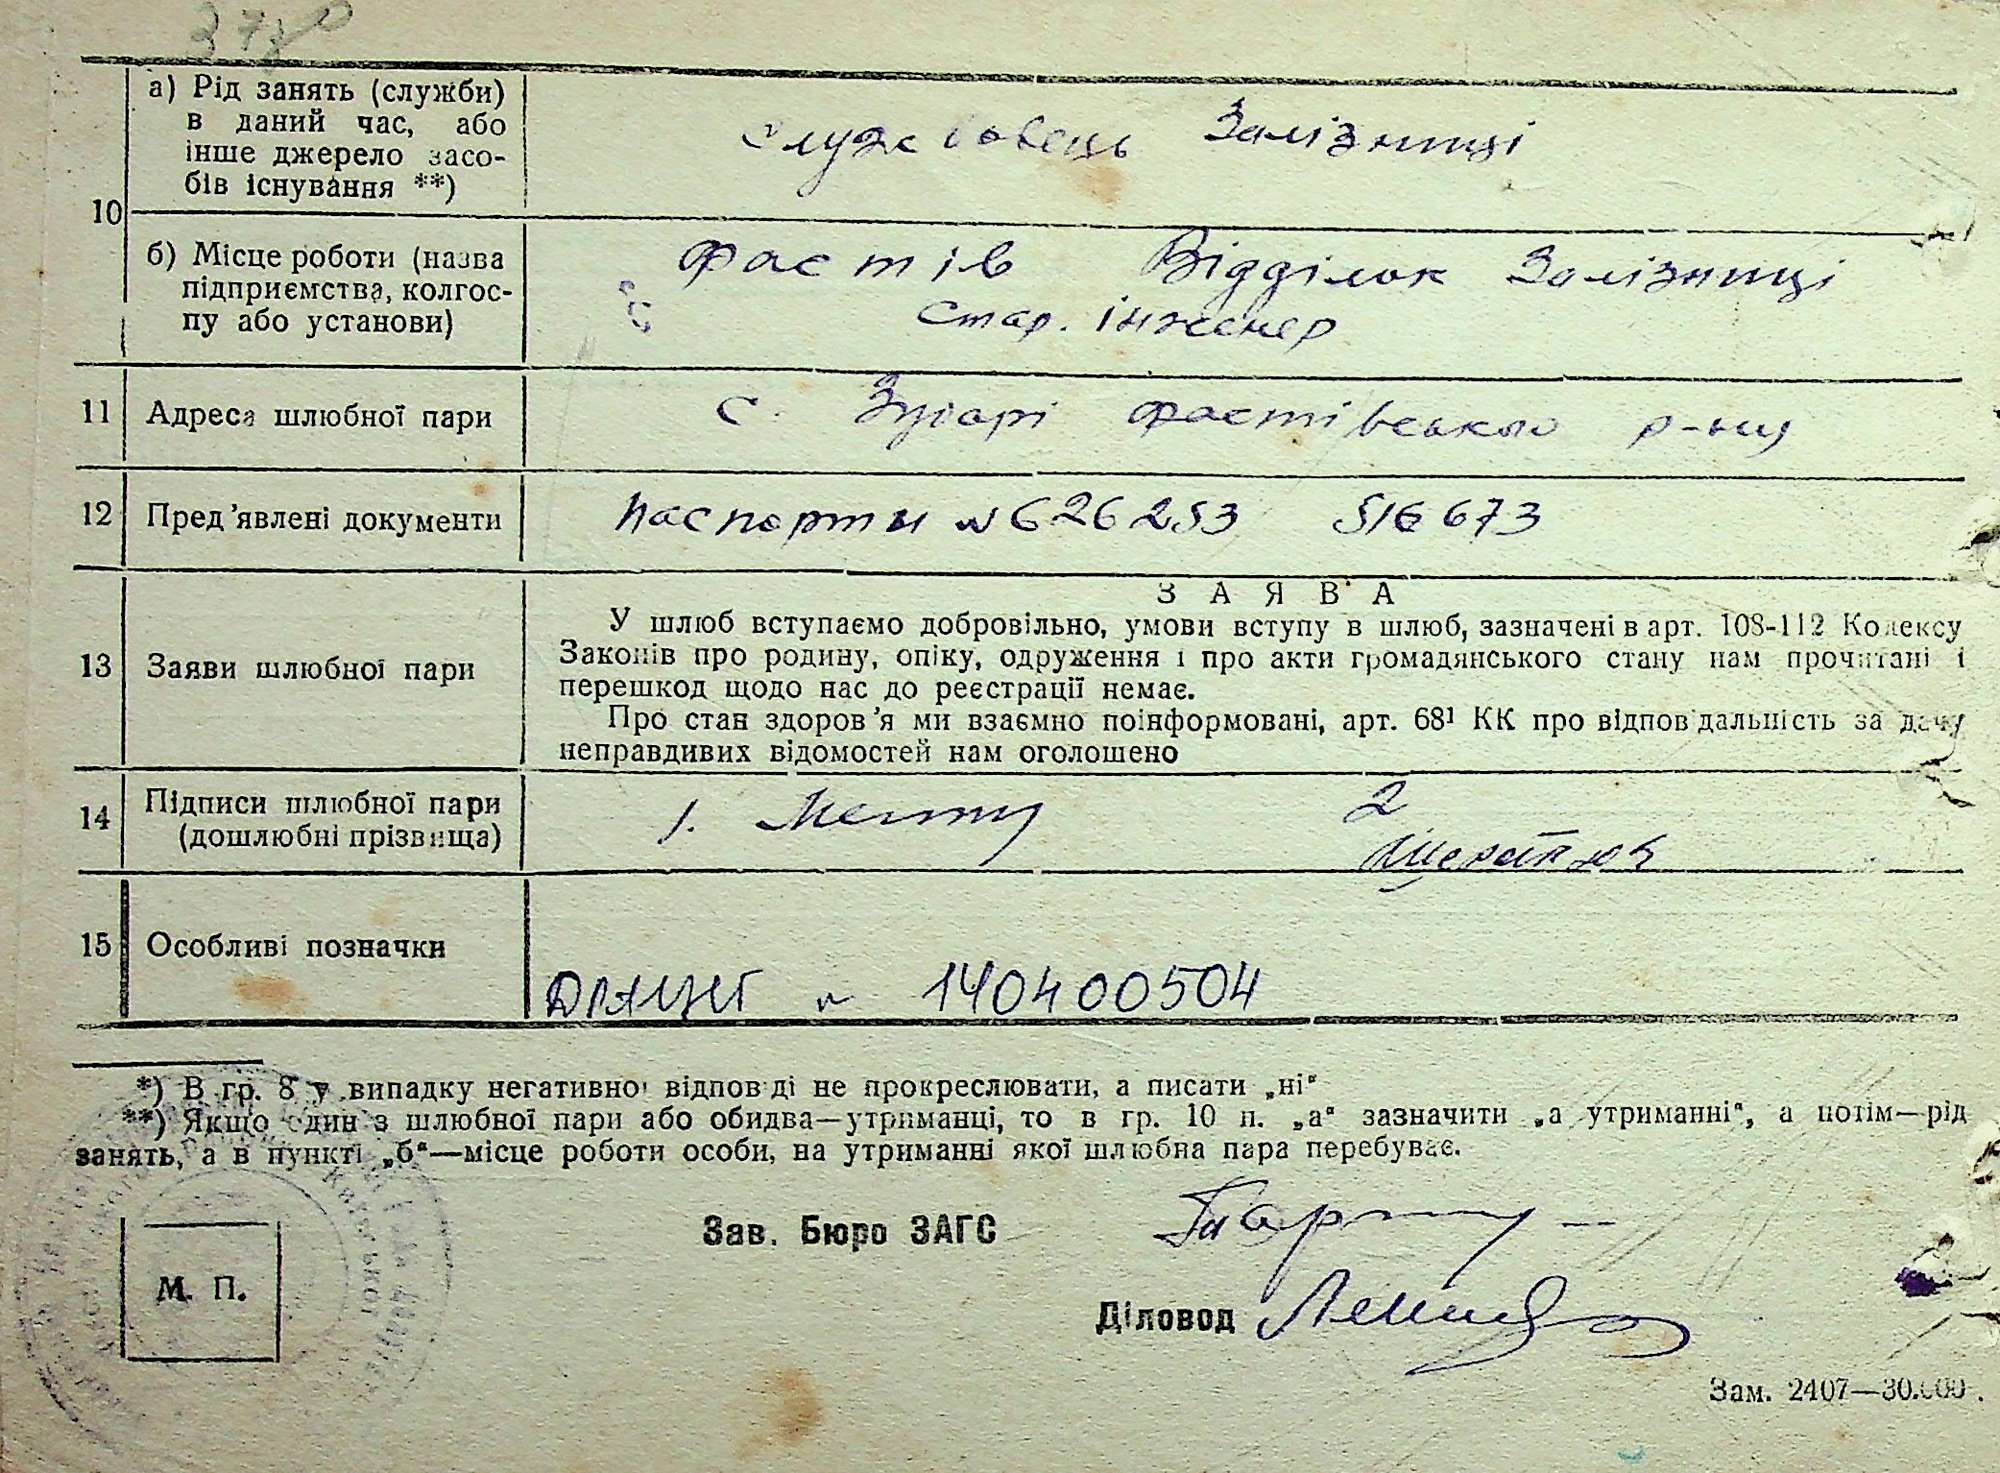 а) Рід занять (служби)
в даний час, або
інше джерело засо-
бів існування **)
Службовець Залізниці
10
б) Місце роботи (назва
підприємства, колгос-
пу або установи)
Фастів Відділок Залізниці
Стар. інженер
11 Адреса шлюбної пари
с. Зубарі Фастівського р-ну
12 Пред'явлені документи
Паспорти № 626253 516673
З А Я В А
13 Заяви шлюбної пари
У шлюб вступаємо добровільно, умови вступу в шлюб, зазначені в арт. 108-112 Кодексу
Законів про родину, опіку, одруження і про акти громадянського стану нам прочитані і
перешкод щодо нас до реєстрації немає.
Про стан здоров'я ми взаємно поінформовані, арт. 68¹ КК про відповідальність за дачу
неправдивих відомостей нам оголошено
14 Підписи шлюбної пари
(дошлюбні прізвища)
1.
2
15 Особливі позначки
ДРАЦСГ № 140400504
*) В гр. 8 у випадку негативної відповіді не прокреслювати, а писати „ні“
**) Якщо один з шлюбної пари або обидва—утриманці, то в гр. 10 п. „а“ зазначити „а утриманні“, а потім—рід
занять, а в пункті „б“—місце роботи особи, на утриманні якої шлюбна пара перебуває.
Зав. Бюро ЗАГС
М. П.
Діловод
Зам. 2407—30.000.